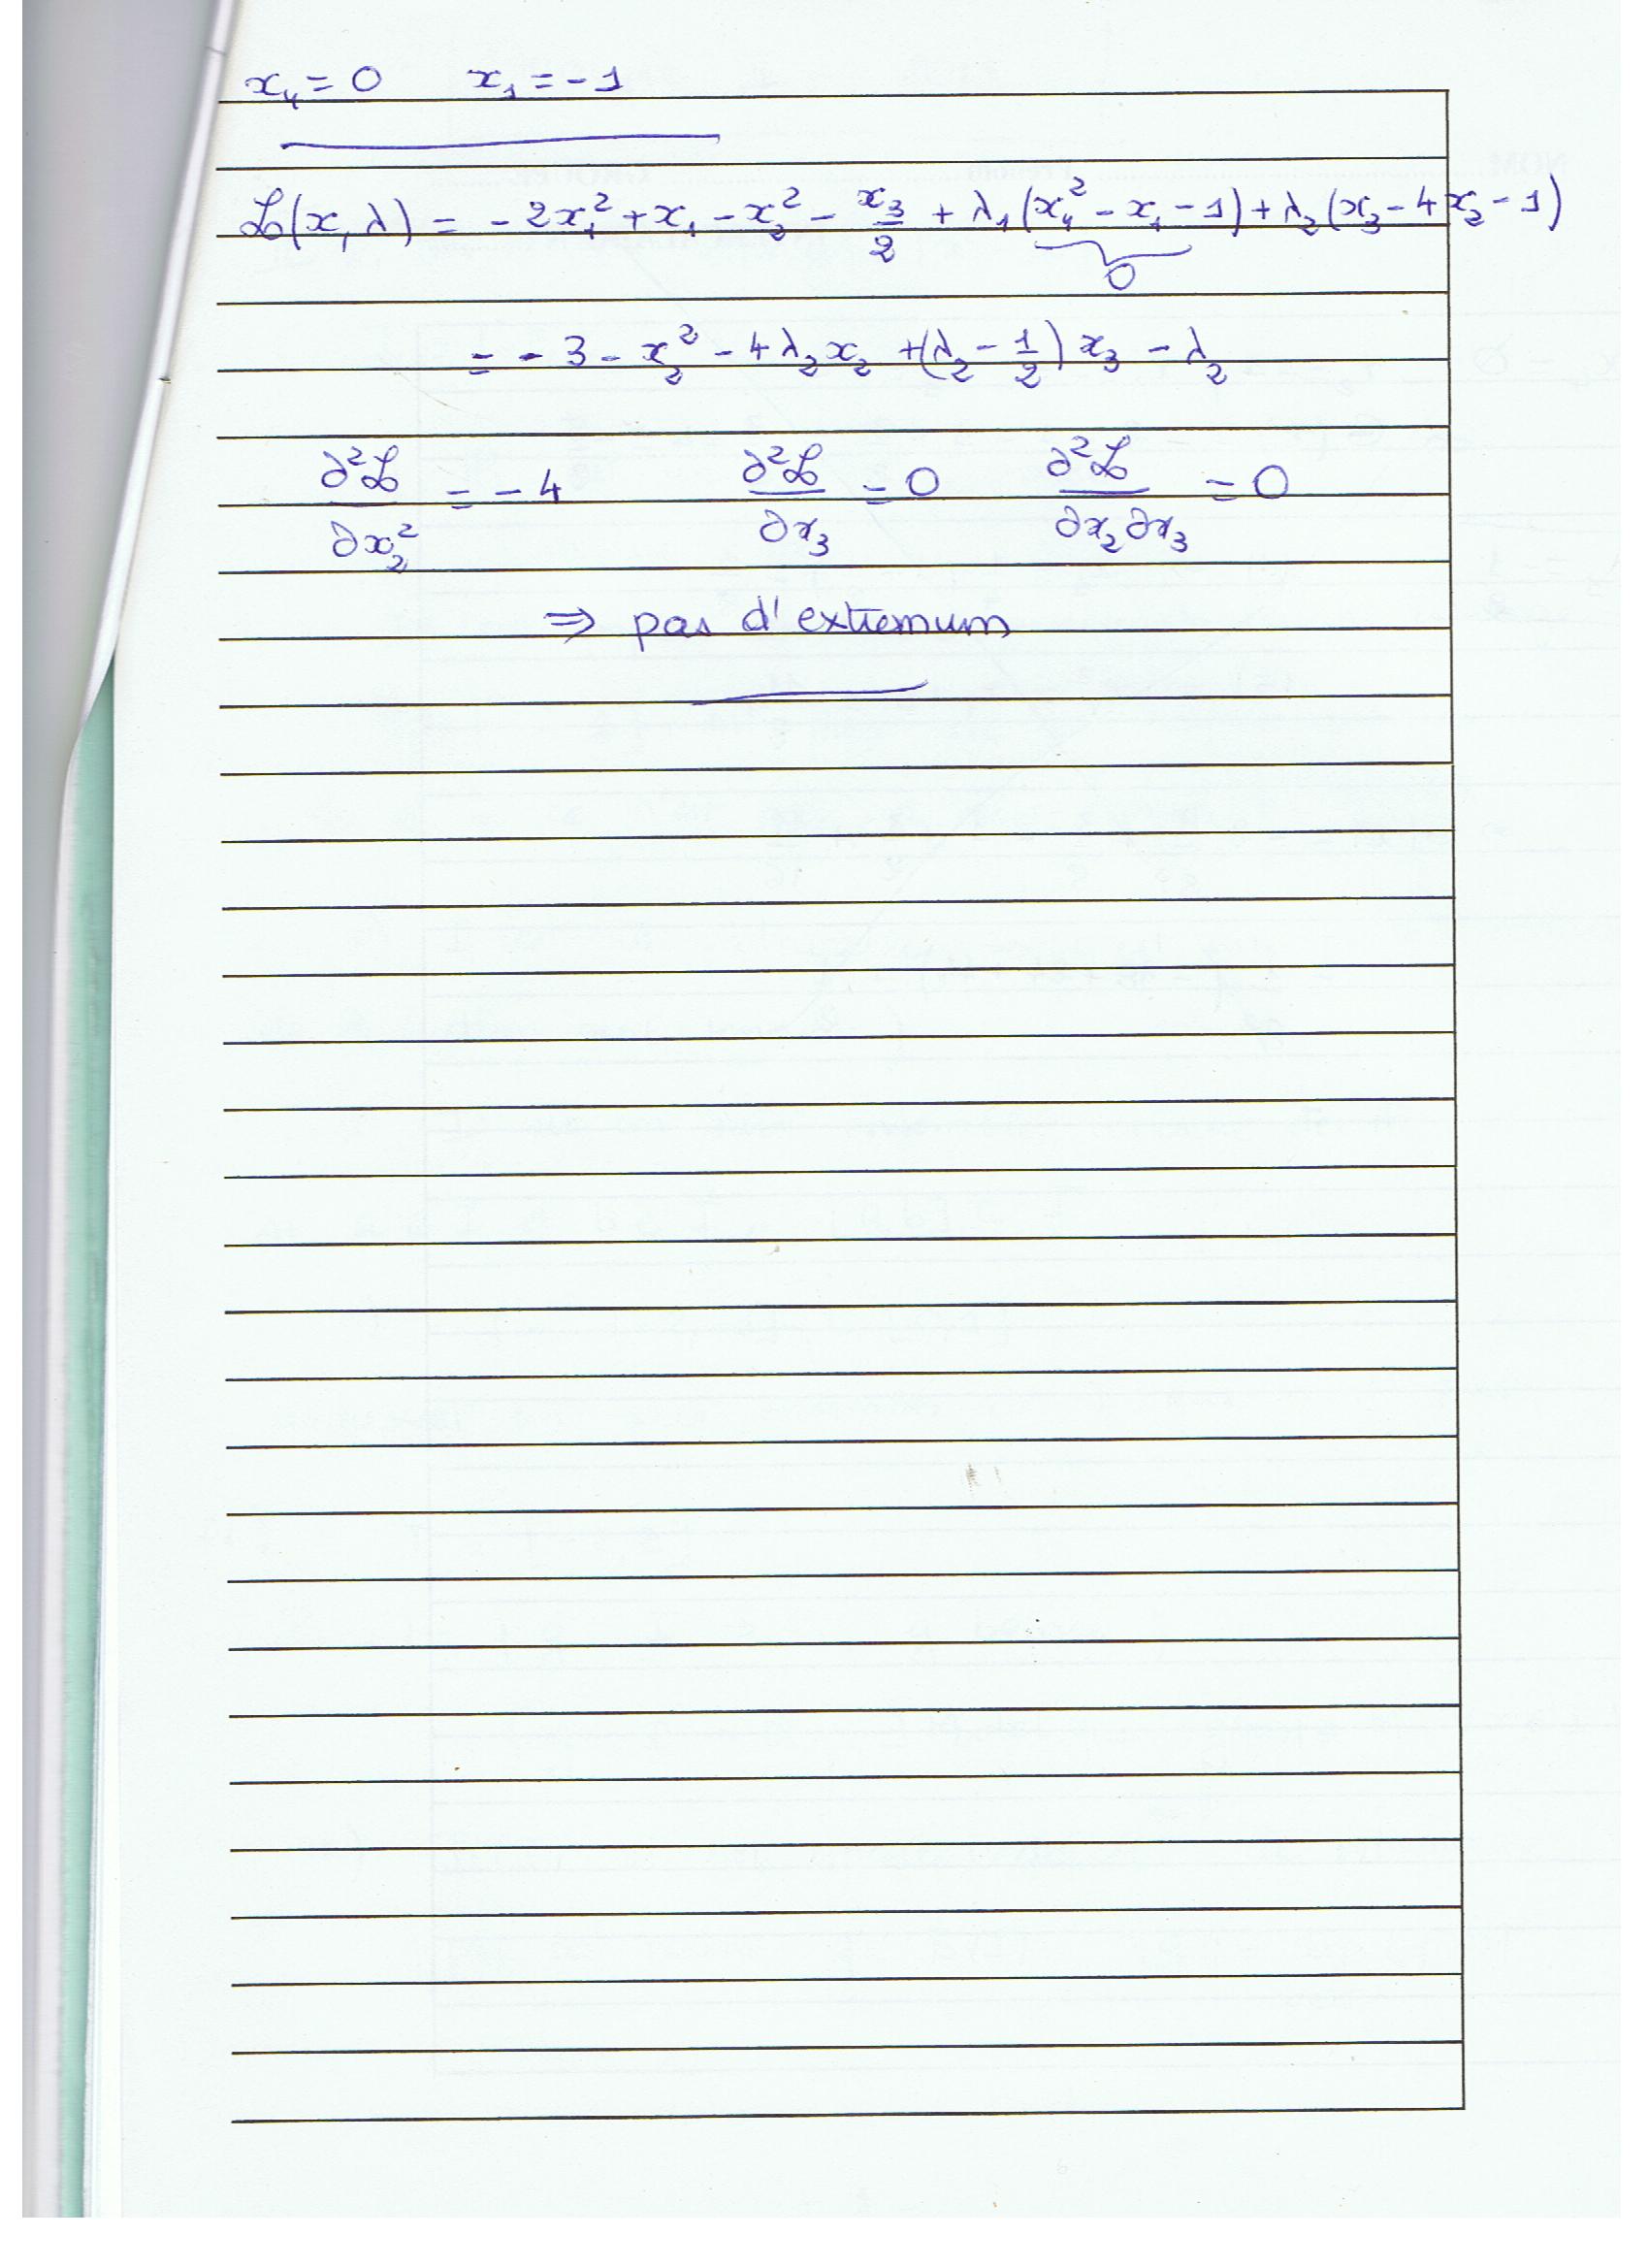 x₄ = 0 x₁ = -1
ℒ(x, λ) = - 2x₁² + x₁ - x₂² - x₃/2 + λ₁(x₄² - x₁ - 1) + λ₂(x₃ - 4x₂ - 1)
0
= - 3 - x₂² - 4λ₂x₂ + (λ₂ - 1/2) x₃ - λ₂
∂²ℒ/∂x₂² = - 4 ∂²ℒ/∂x₃ = 0 ∂²ℒ/∂x₂∂x₃ = 0
⇒ pas d'extremum